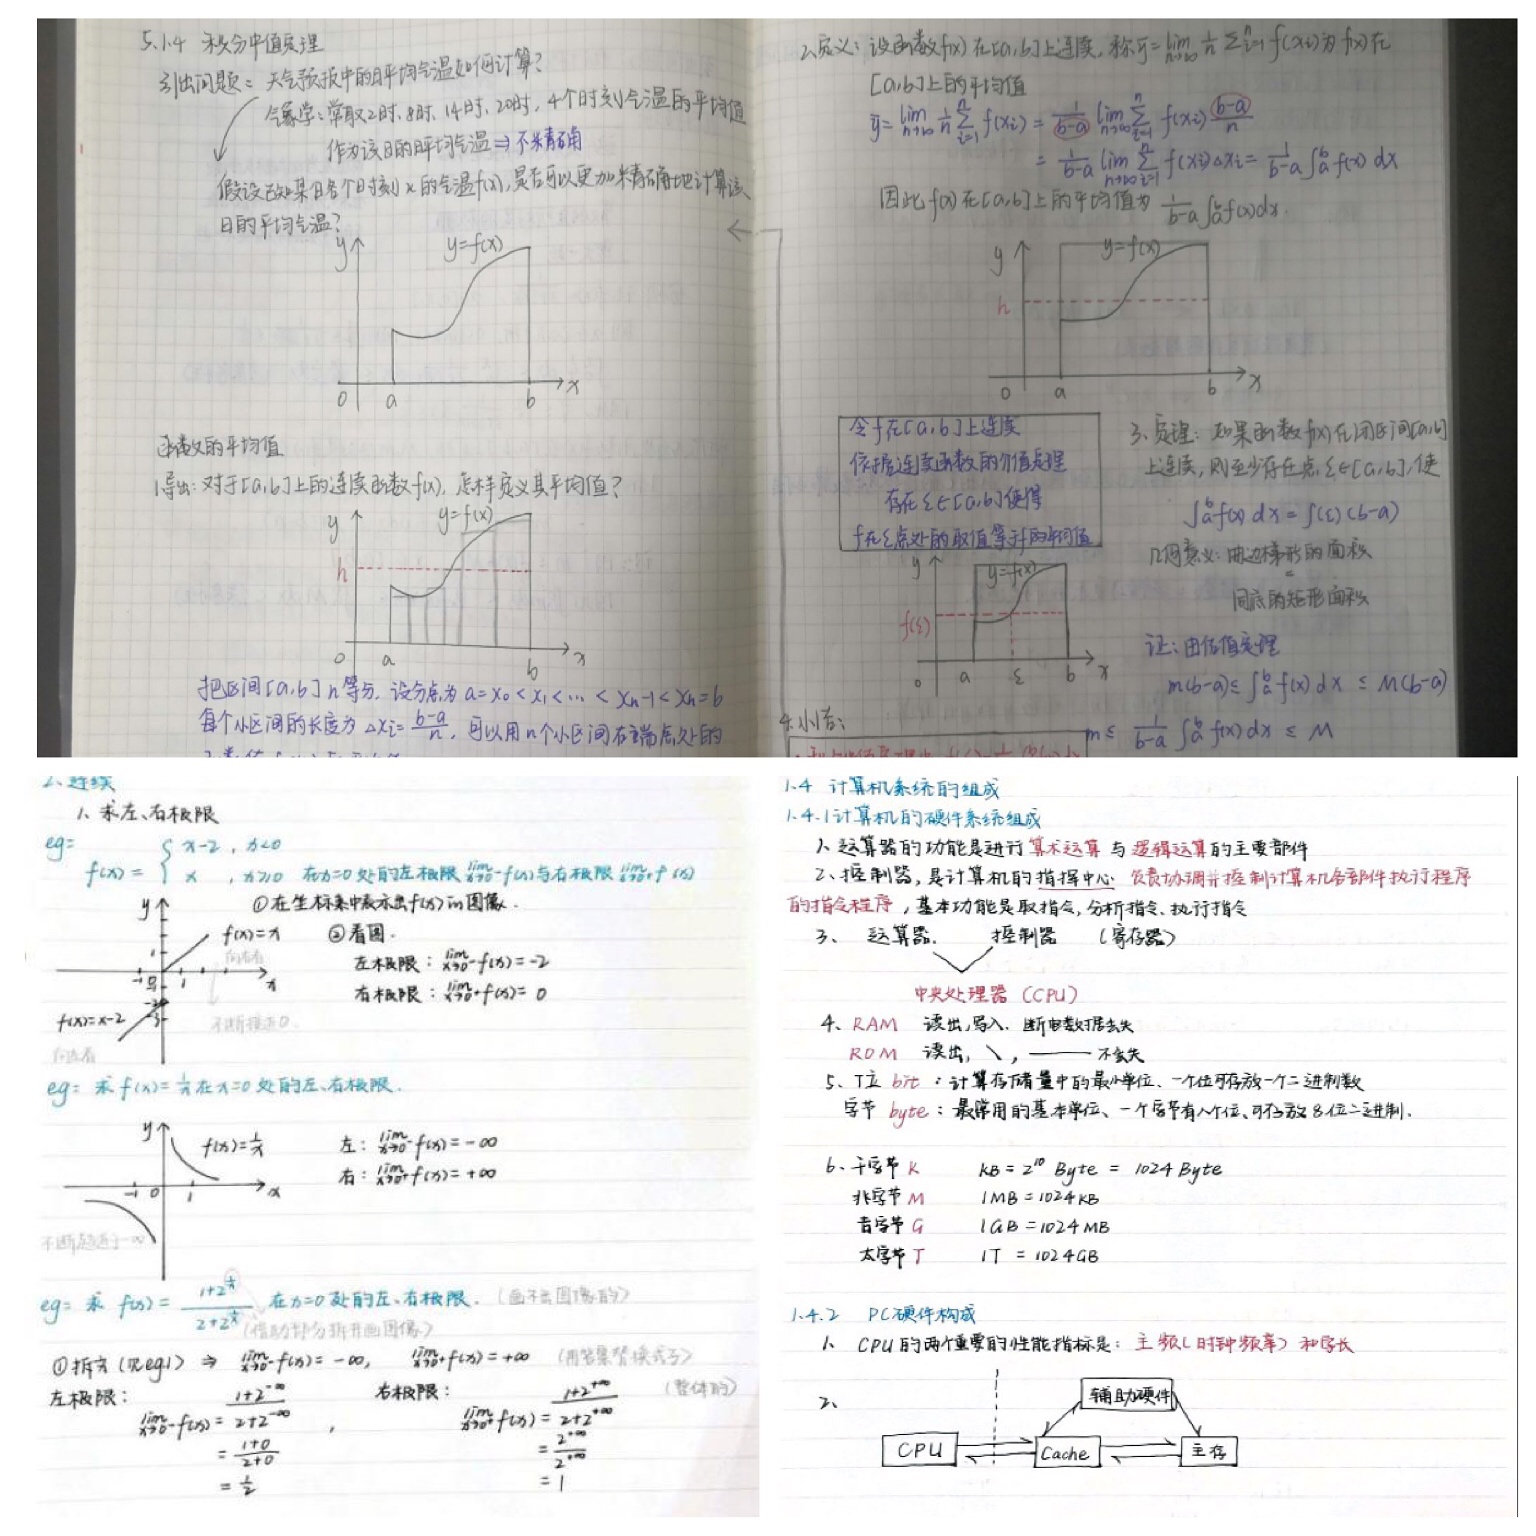 5.1.4 积分中值定理
引出问题：天气预报中的日平均气温如何计算？
气象学：常取2时、8时、14时、20时，4个时刻气温的平均值
作为该日的日平均气温⇒不精确
假设已知某日各个时刻x的气温f(x)，是否可以更加精确地计算该
日的平均气温？
y y=f(x)
0 a b x
函数的平均值
1.导出：对于[a,b]上的连续函数f(x)，怎样定义其平均值？
y y=f(x)
h
0 a b x
把区间[a,b] n等分，设分点为a=x₀<x₁<…<xₙ₋₁<xₙ=b
每个小区间的长度为△xᵢ=(b-a)/n，可以用n个小区间右端点处的
2.定义：设函数f(x)在[a,b]上连续，称ȳ=lim n→∞ 1/n Σⁿᵢ₌₁ f(xᵢ)为f(x)在
[a,b]上的平均值
ȳ=lim n→∞ 1/n Σⁿᵢ₌₁ f(xᵢ) = 1/(b-a) lim n→∞ Σⁿᵢ₌₁ f(xᵢ) (b-a)/n
= 1/(b-a) lim n→∞ Σⁿᵢ₌₁ f(xᵢ)△xᵢ = 1/(b-a) ∫ₐᵇ f(x) dx
因此f(x)在[a,b]上的平均值为 1/(b-a) ∫ₐᵇ f(x)dx.
y y=f(x)
h
0 a b x
令f在[a,b]上连续
依据连续函数的介值定理
存在ξ∈[a,b]使得
f在ξ点处的取值等于f的平均值
y y=f(x)
f(ξ)
0 a ξ b x
3.定理：如果函数f(x)在闭区间[a,b]
上连续，则至少存在点ξ∈[a,b]，使
∫ₐᵇ f(x) dx = f(ξ)(b-a)
几何意义：曲边梯形的面积
=
同底的矩形面积
证：由估值定理
m(b-a)≤∫ₐᵇ f(x) dx ≤ M(b-a)
m≤ 1/(b-a) ∫ₐᵇ f(x) dx ≤ M
4.小结：
2、连续
1、求左、右极限
eg:
f(x)= { x-2，x<0
x，x≥0 在x=0处的左极限lim x→0⁻ f(x)与右极限lim x→0⁺ f(x)
①在坐标系中表示出f(x)的图像.
y f(x)=x ②看图.
左极限：lim x→0⁻ f(x)=-2
-1 0 1 x
右极限：lim x→0⁺ f(x)=0
f(x)=x-2
不断接近0.
eg: 求f(x)=1/x在x=0处的左、右极限.
y f(x)=1/x 左：lim x→0⁻ f(x)=-∞
右：lim x→0⁺ f(x)=+∞
-1 0 1 x
不断趋近于-∞
eg: 求 f(x)= (1+2^(1/x))/(2+2^(1/x)) 在x=0处的左、右极限.（画不出图像的）
（借助部分拆开画图像）
①拆分（见eg1）⇒ lim x→0⁻ f(x)=-∞, lim x→0⁺ f(x)=+∞ （用答案替换式子）
左极限： 右极限： （整体的）
lim x→0⁻ f(x)= (1+2^-∞)/(2+2^-∞) ， lim x→0⁺ f(x)= (1+2^+∞)/(2+2^+∞)
= (1+0)/(2+0) = 2^+∞/2^+∞
= 1/2 = 1
1.4 计算机系统的组成
1.4.1计算机的硬件系统组成
1、运算器的功能是进行算术运算与逻辑运算的主要部件
2、控制器，是计算机的指挥中心 负责协调并控制计算机各部件执行程序
的指令程序，基本功能是取指令，分析指令、执行指令
3、 运算器. 控制器 （寄存器）
中央处理器（CPU）
4、RAM 读出，写入. 断电数据丢失
ROM 读出，＼，—— 不丢失
5、位 bit：计算存储量中的最小单位、一个位可存放一个二进制数
字节 byte：最常用的基本单位、一个字节有八个位、可存放8位二进制.
6、千字节 K KB=2¹⁰ Byte = 1024 Byte
兆字节 M 1MB=1024KB
吉字节 G 1GB=1024MB
太字节 T 1T = 1024GB
1.4.2 PC硬件构成
1、CPU的两个重要的性能指标是：主频（时钟频率）和字长
2、
辅助硬件
CPU Cache 主存